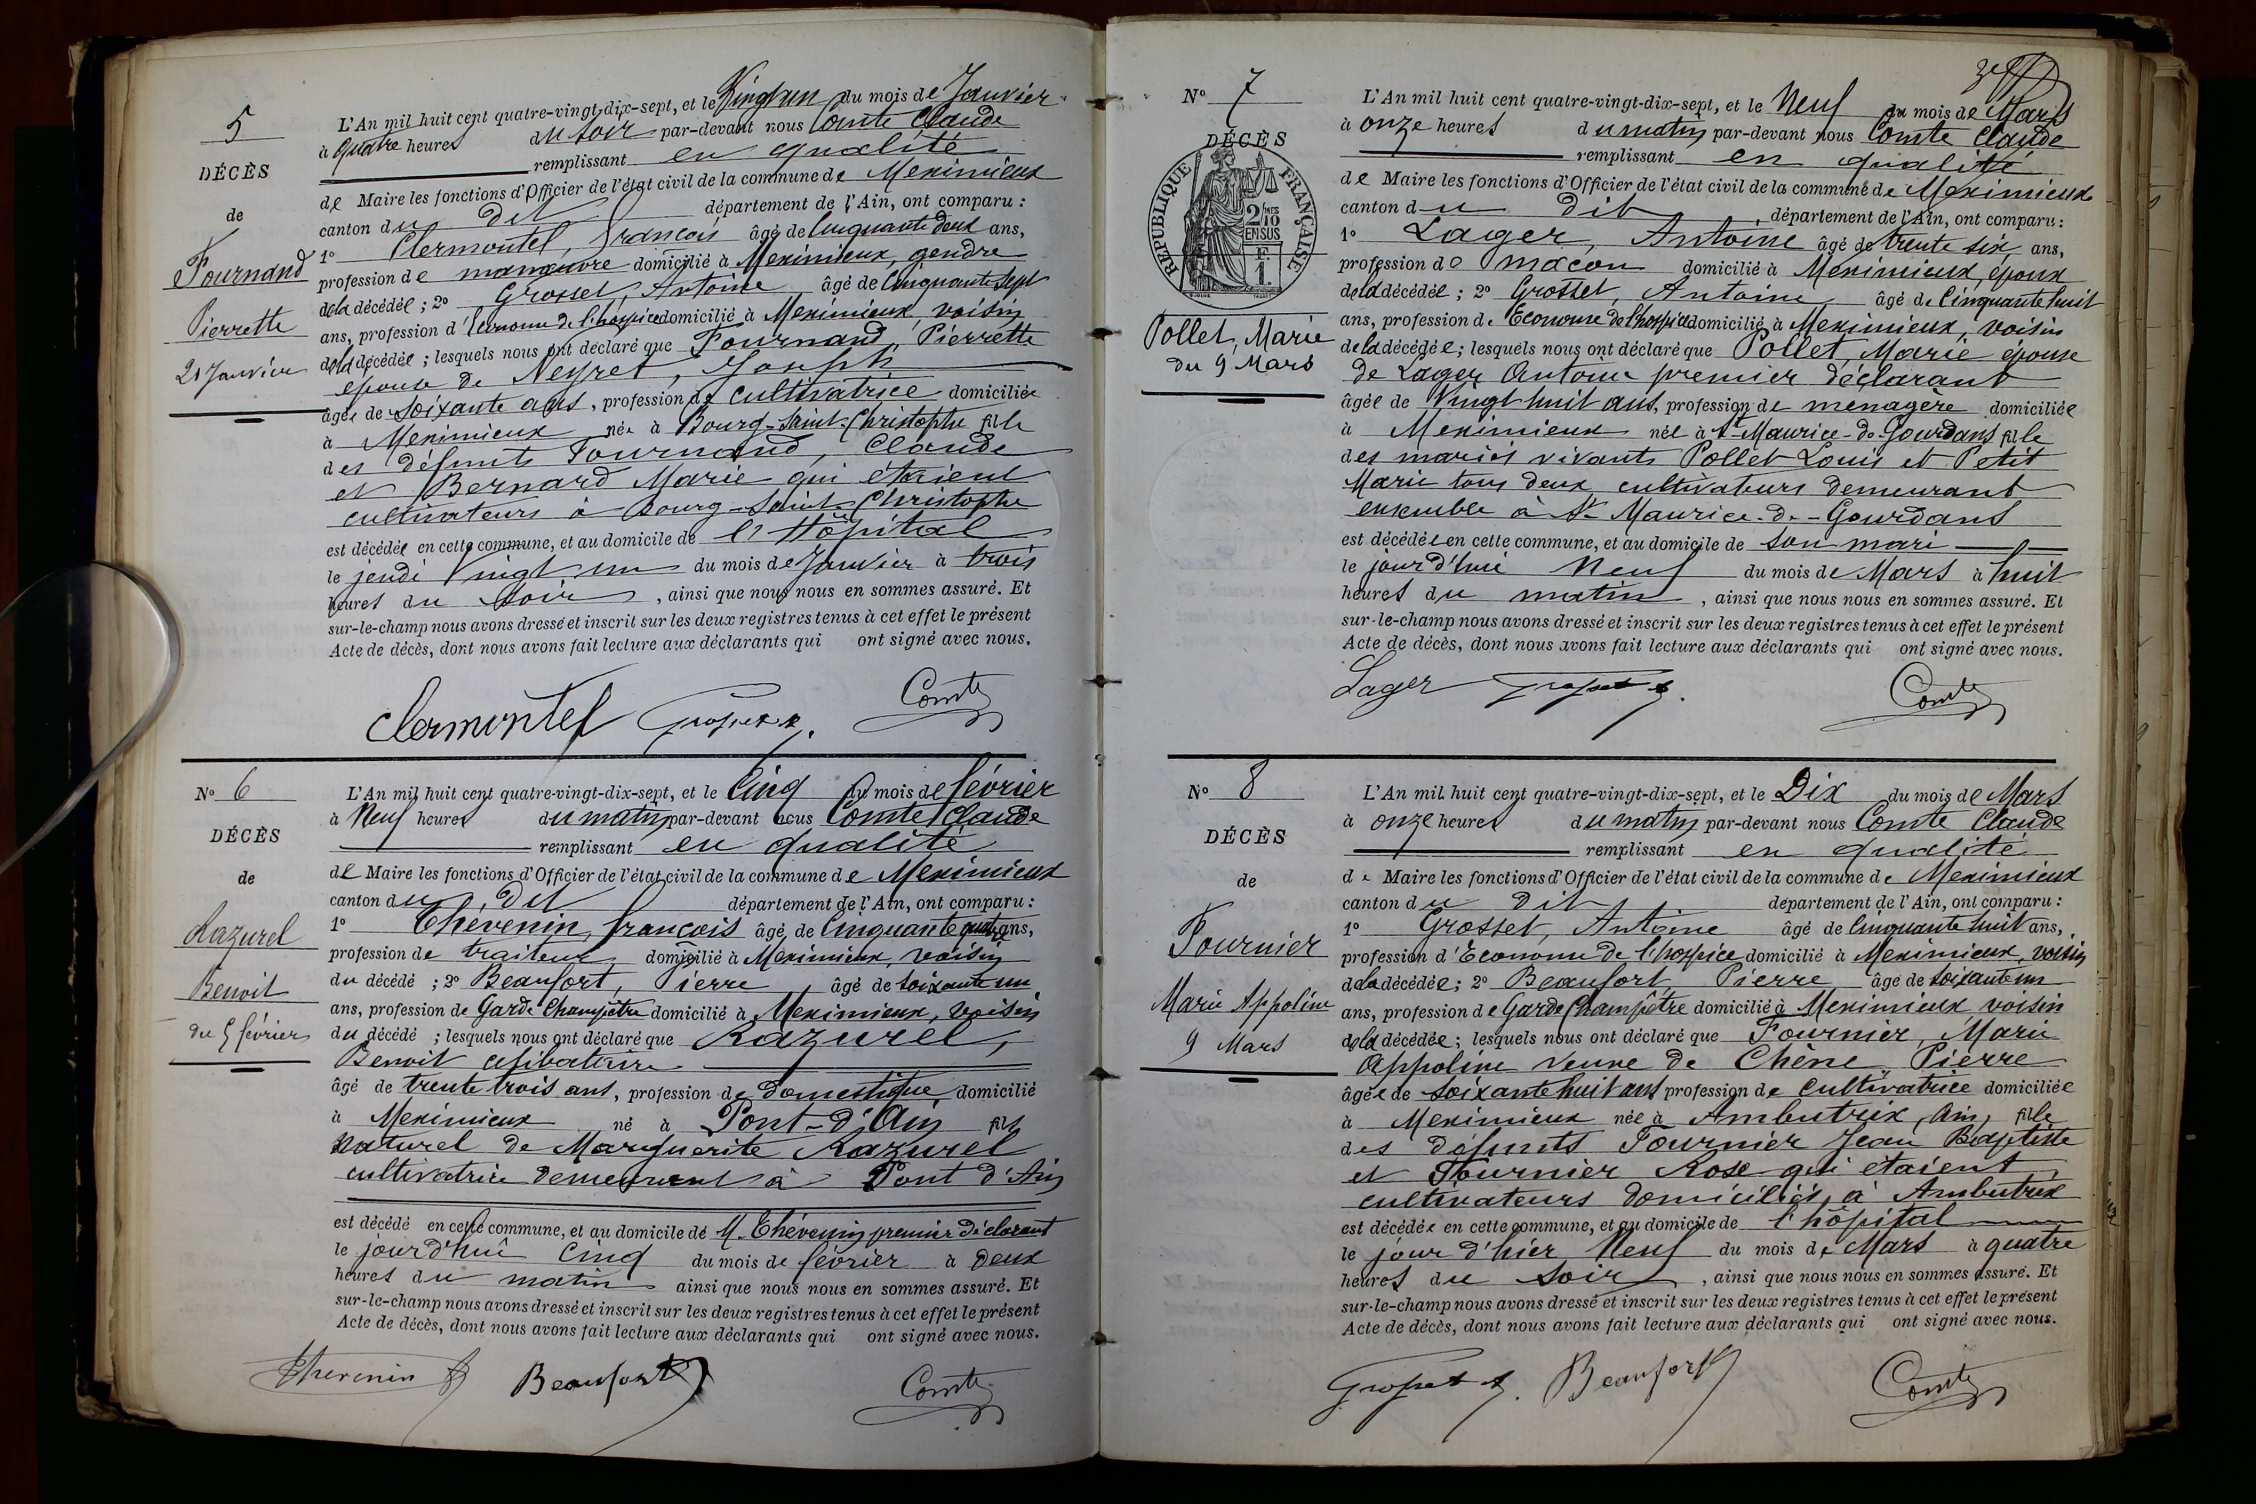 5
DÉCÈS
de
Fournand
Pierrette
21 Janvier
L'An mil huit cent quatre-vingt-dix-sept, et le Vingt un du mois de Janvier
à quatre heures du soir par-devant nous Comte Claude
remplissant en qualité
de Maire les fonctions d'Officier de l'état civil de la commune de Meximieux
canton du dit département de l'Ain, ont comparu :
1° Clermontel, François âgé de Cinquante deux ans,
profession de manœuvre domicilié à Meximieux, gendre
de la décédée ; 2° Grosset, Antoine âgé de Cinquante sept
ans, profession d'Econome de l'hospice domicilié à Meximieux, voisin
de la décédée ; lesquels nous ont déclaré que Fournand, Pierrette
épouse de Neyret, Joseph
âgée de soixante ans, profession de cultivatrice domiciliée
à Meximieux née à Bourg-Saint-Christophe fille
des défunts Fournand, Claude
et Bernard Marie qui étaient
cultivateurs à Bourg-Saint-Christophe
est décédée en cette commune, et au domicile de l'Hôpital
le jeudi Vingt un du mois de Janvier à trois
heures du soir, ainsi que nous nous en sommes assuré. Et
sur-le-champ nous avons dressé et inscrit sur les deux registres tenus à cet effet le présent
Acte de décès, dont nous avons fait lecture aux déclarants qui ont signé avec nous.
Clermontel Grosset Comte
N° 6
DÉCÈS
de
Razurel
Benoit
du 5 février
L'An mil huit cent quatre-vingt-dix-sept, et le Cinq du mois de février
à Neuf heures du matin par-devant nous Comte Claude
remplissant en qualité
de Maire les fonctions d'Officier de l'état civil de la commune de Meximieux
canton du dit département de l'Ain, ont comparu :
1° Thévenin, François âgé de Cinquante quatre ans,
profession de traiteur domicilié à Meximieux, voisin
du décédé ; 2° Beaufort, Pierre âgé de soixante un
ans, profession de Garde Champêtre domicilié à Meximieux, voisin
du décédé ; lesquels nous ont déclaré que Razurel,
Benoit célibataire
âgé de trente trois ans, profession de domestique domicilié
à Meximieux né à Pont-d'Ain fils
naturel de Marguerite Razurel
cultivatrice demeurant à Pont d'Ain
est décédé en cette commune, et au domicile de M. Thévenin premier déclarant
le jourd'hui Cinq du mois de février à Deux
heures du matin ainsi que nous nous en sommes assuré. Et
sur-le-champ nous avons dressé et inscrit sur les deux registres tenus à cet effet le présent
Acte de décès, dont nous avons fait lecture aux déclarants qui ont signé avec nous.
Thevenin Beaufort Comte
N° 7
DÉCÈS
REPUBLIQUE FRANÇAISE
2/10MES
EN SUS
F.
1.
Pollet, Marie
du 9 Mars
L'An mil huit cent quatre-vingt-dix-sept, et le Neuf du mois de Mars
à onze heures du matin par-devant nous Comte Claude
remplissant en qualité
de Maire les fonctions d'Officier de l'état civil de la commune de Meximieux
canton du dit, département de l'Ain, ont comparu :
1° Lager, Antoine âgé de trente six ans,
profession de maçon domicilié à Meximieux, époux
de la décédée ; 2° Grosset, Antoine âgé de Cinquante huit
ans, profession d'Econome de l'hospice domicilié à Meximieux, voisin
de la décédée ; lesquels nous ont déclaré que Pollet, Marie épouse
de Lager Antoine premier déclarant
âgée de Vingt huit ans, profession de ménagère domiciliée
à Meximieux née à St Maurice-de-Gourdans fille
des mariés vivants Pollet Louis et Petit
Marie tous deux cultivateurs demeurant
ensemble à St Maurice-de-Gourdans
est décédée en cette commune, et au domicile de son mari
le jourd'hui Neuf du mois de Mars à huit
heures du matin, ainsi que nous nous en sommes assuré. Et
sur-le-champ nous avons dressé et inscrit sur les deux registres tenus à cet effet le présent
Acte de décès, dont nous avons fait lecture aux déclarants qui ont signé avec nous.
Lager Grosset Comte
N° 8
DÉCÈS
de
Fournier
Marie Appoline
9 Mars
L'An mil huit cent quatre-vingt-dix-sept, et le Dix du mois de Mars
à onze heures du matin par-devant nous Comte Claude
remplissant en qualité
de Maire les fonctions d'Officier de l'état civil de la commune de Meximieux
canton du dit département de l'Ain, ont comparu :
1° Grosset, Antoine âgé de Cinquante huit ans,
profession d'Econome de l'hospice domicilié à Meximieux, voisin
de la décédée ; 2° Beaufort, Pierre âgé de soixante un
ans, profession de Garde Champêtre domicilié à Meximieux voisin
de la décédée ; lesquels nous ont déclaré que Fournier, Marie
Appoline Veuve de Chêne, Pierre
âgée de soixante huit ans profession de cultivatrice domiciliée
à Meximieux née à Ambutrix, Ain, fille
des défunts Fournier Jean Baptiste
et Fournier Rose qui étaient
cultivateurs domiciliés à Ambutrix
est décédée en cette commune, et au domicile de l'hôpital
le jour d'hier Neuf du mois de Mars à quatre
heures du soir, ainsi que nous nous en sommes assuré. Et
sur-le-champ nous avons dressé et inscrit sur les deux registres tenus à cet effet le présent
Acte de décès, dont nous avons fait lecture aux déclarants qui ont signé avec nous.
Grosset Beaufort Comte